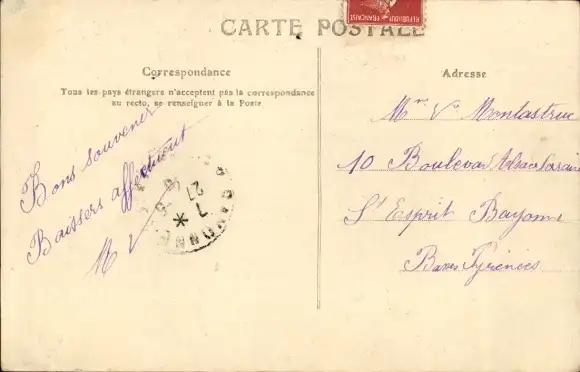 CARTE POSTALE
REPUBLIQUE FRANÇAISE
Correspondance
Tous les pays étrangers n'acceptent pas la correspondance
au recto, se renseigner à la Poste
Bons souvenir
Baisers affectueux
M V
BAYONNE
7
27
Adresse
Mme Ve Montastruc
10 Boulevard Alsace Lorraine
St Esprit Bayonne
Basses Pyrénées